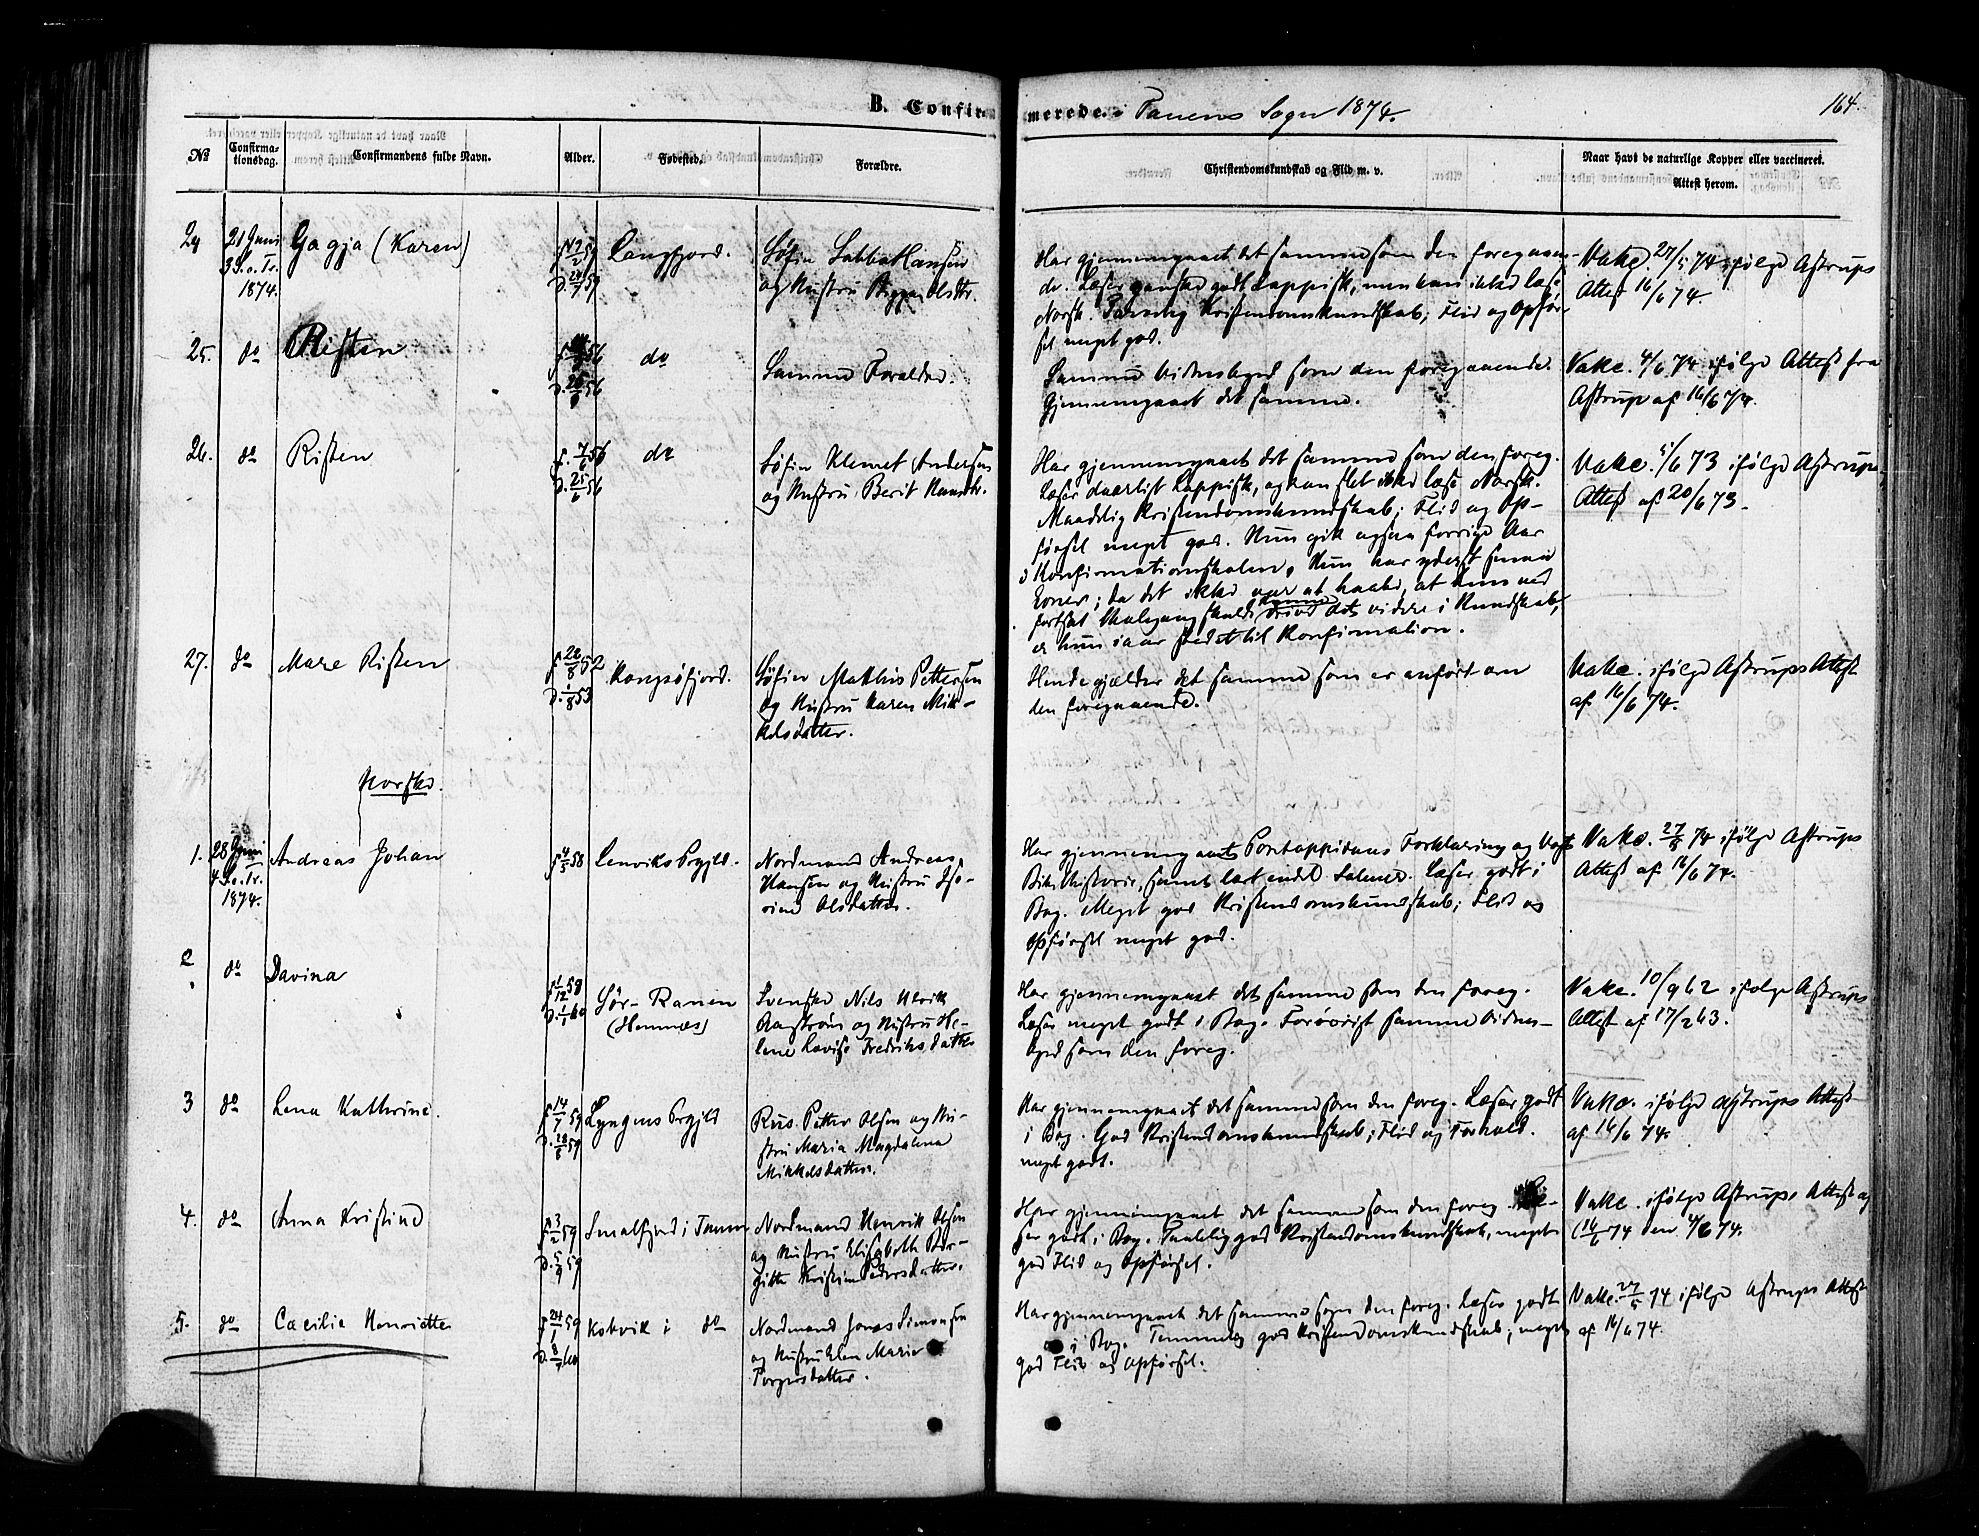 B. Confirmerede. Tanens Sogn 1874.
164.
No
Confirmationsdag.
Confirmandens fulde Navn.
Alder.
Fødested.
Forældre.
Christendomskundskab og Flid m. v.
Naar havt de naturlige Kopper eller vaccineret.
Attest herom.
24
21 Juni
3 S. e. Tr.
1874.
Gagja (Karen)
Langfjord.
Søfin Sabba Hansen
og Hustru Biggga Olsdtr.
Har gjennemgaaet det samme som den foregaaen-
de. Læser ganske godt Lappisk, men kan ikke læse
Norsk. Kristendomskundskab; Flid og Opfør-
sel meget god.
Vakc. 27/5 74 ifølge Astrups
Attest 16/6 74.
25.
do
Risten
do
Samme Forældre.
Samme Vidnesbyrd som den foregaaende.
Gjennemgaaet det samme.
Vakc. 4/6 74 ifølge Attest fra
Astrup af 16/6 74.
26.
do
Risten
f. 7/6 56
d. 25/6 56
do
Søfin Klemet Andersen
og Hustru Berit
Har gjennemgaaet det samme som den foreg.
Læser daarligt Lappisk, og kan slet ikke læse Norsk.
Maadelig Kristendomskundskab; Flid og Op-
førsel meget god. Hun gik ogsaa forrige Aar
i Konfirmationsskolen. Hun har yderst smaa
Evner; da det ikke var at haabe, at hun ved
fortsat Skolegang skulde kunne drive det videre i Kundskab,
er hun iaar stedet til Konfirmation.
Vakc. 5/6 73 ifølge Astrups
Attest af 20/6 73.
27.
do
Mare Risten
f 22/8 52
d. 1/8 53
Kongsøfjord.
Søfin Mathis Pettersen
og Hustru Karen Mik-
kelsdatter.
Hende gjælder det samme som er anført om
den foregaaende.
Vakc. ifølge Astrups Attest
af 16/6 74.
Norske.
1.
28 Juni
4 S. e. Tr.
1874.
Andreas Johan
f 4/5 58
Lenviks Prgjld.
Nordmand Andreas
Hansen og Hustru
Olsdatter.
Har gjennemgaaet Pontoppidans Forklaring og Vogts
Bibelhistorie, samt lært endel Salmer. Læser godt i
Bog. Meget god Kristendomskundskab; Flid og
Opførsel meget god.
Vakc. 27/5 74 ifølge Astrups
Attest af 16/6 74.
2
do
Davina
Sør-Ranen
(Hemnæs)
Svenske Nils Ulrik
og Hustru He-
lene Lovise Fredriksdatter
Har gjennemgaaet det samme som den foreg.
Læser meget godt i Bog. Forøvrigt samme Vidnes-
byrd som den foreg.
Vakc. 10/9 62 ifølge Astrups
Attest af 17/2 63.
3
do
Lena Kathrine.
f 14/7 59
d. 28/8 59
Lyngens Prgjld
Kvæn Petter Olsen og Hu-
stru Maria Magdalena
Mikkelsdatter.
Har gjennemgaaet det samme som den foreg. Læser godt
i Bog. God Kristendomskundskab; Flid og Forhold
meget godt.
Vakc. ifølge Astrups Attest
af 16/6 74.
4.
do
Anna Kristine
f 3/2 59
d. 5/9 59
Smalfjord i Tanen
Nordmand Henrik Olsen
og Hustru Elisabeth Bir-
gitte Kristine Pedersdatter.
Har gjennemgaaet det samme som den foreg. Læ-
ser godt i Bog. Taalelig god Kristendomskundskab, meget
god Flid og Opførsel.
Vakc. ifølge Astrups Attest af
16/6 74 den 4/6 74.
5.
do
Cæcilie Henriette
f 24/1 59
d. 8/7 60
Kobvik i do
Nordmand Jonas Simonsen
og Hustru Elen Marie
Torgersdatter.
Har gjennemgaaet det samme som den foreg. Læser godt
i Bog. Temmelig god Kristendomskundskab, meget
god Flid og Opførsel.
Vakc. 27/5 74 ifølge Astrups Attest
af 16/6 74.